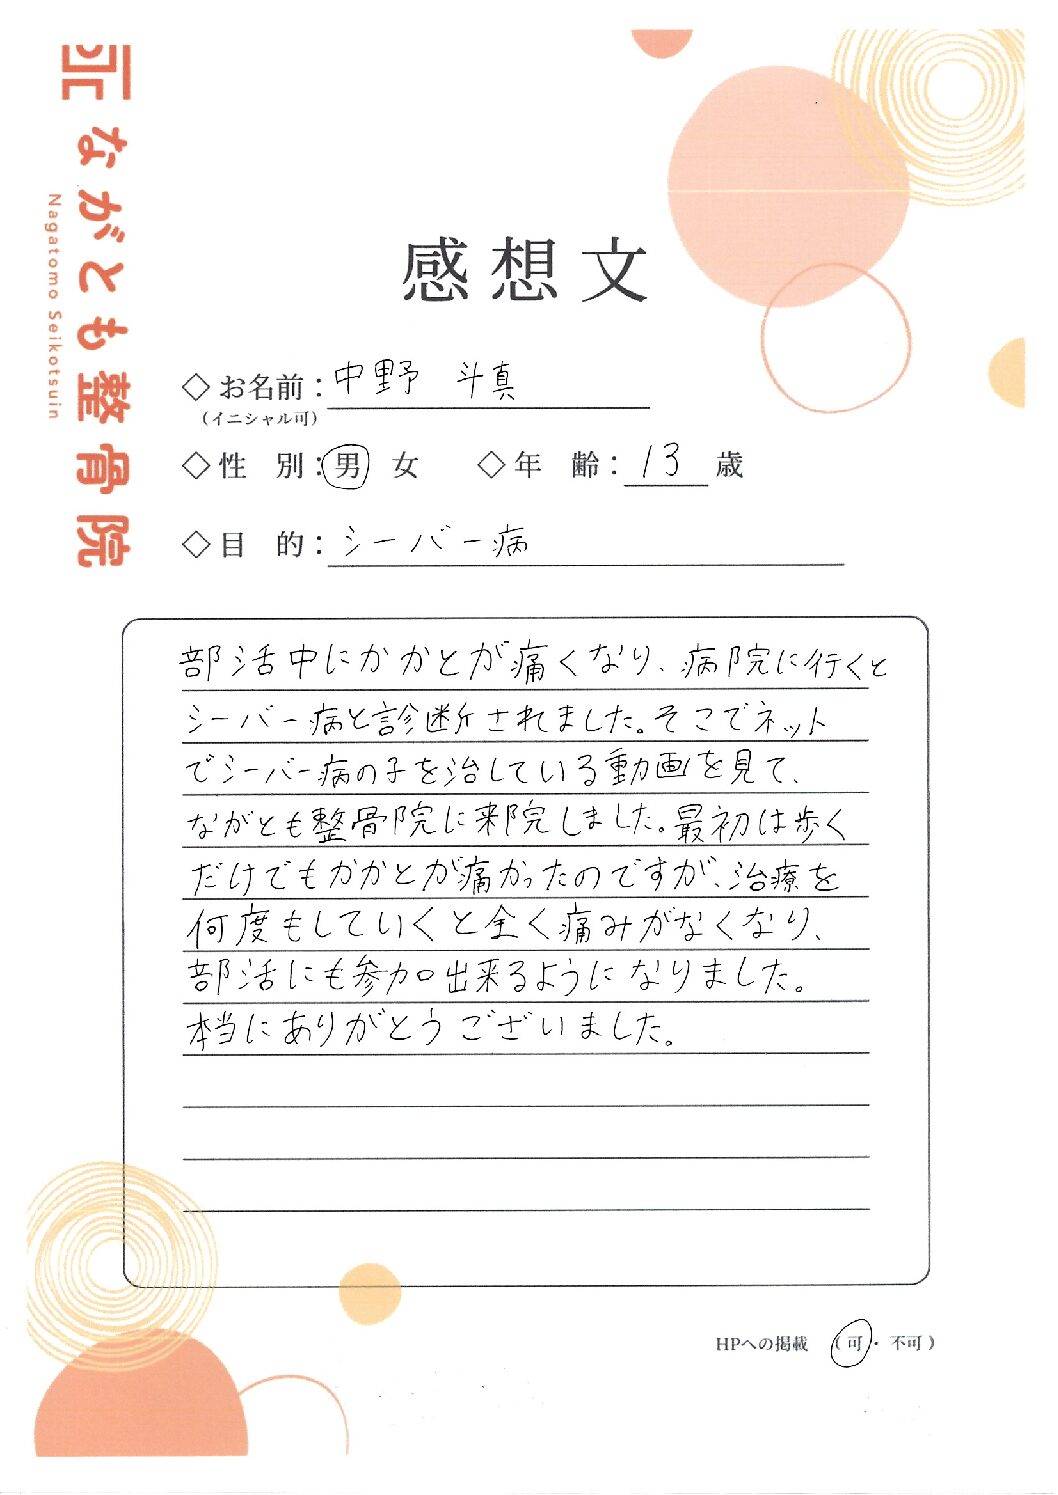 ながとも整骨院
Nagatomo Seikotsuin
感想文
◇お名前：中野 斗真
（イニシャル可）
◇性 別：男 女 ◇年 齢：13 歳
◇目 的：シーバー病
部活中にかかとが痛くなり、病院に行くと
シーバー病と診断されました。そこでネット
でシーバー病の子を治している動画を見て、
ながとも整骨院に来院しました。最初は歩く
だけでもかかとが痛かったのですが、治療を
何度もしていくと全く痛みがなくなり、
部活にも参加出来るようになりました。
本当にありがとうございました。
HPへの掲載 （可・不可）